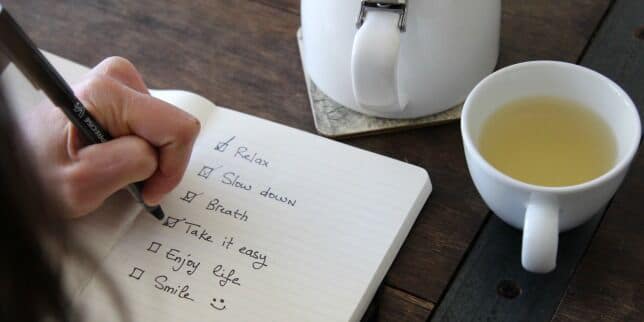 Relax
Slow down
Breath
Take it easy
Enjoy life
Smile